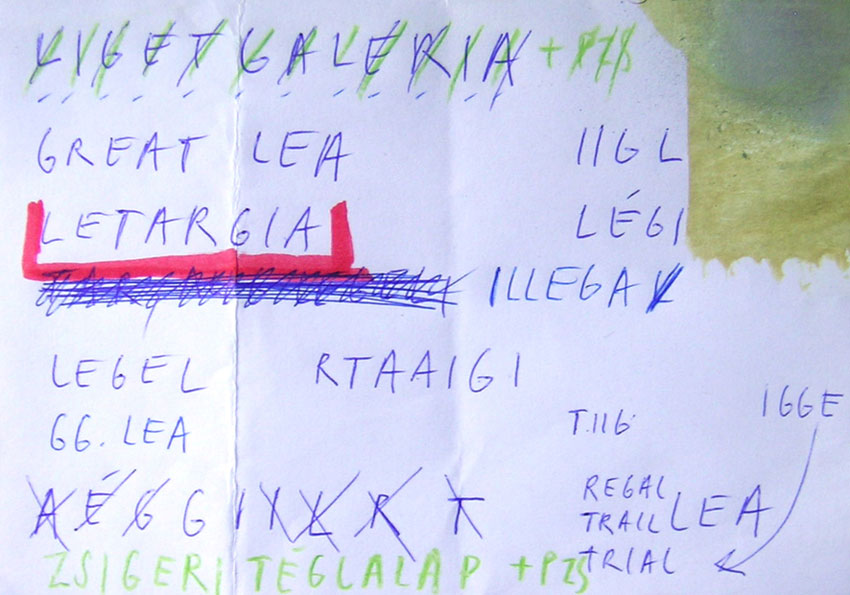 LIGET GALERIA + PZS
GREAT LEA IIGL
LETARGIA LÉGI
ILLEGAL
LEGEL RTAAIGI
GG. LEA T.IIG IGGE
A É G G I I L R T
REGAL
TRAIL LEA
TRIAL
ZSIGERI TÉGLALAP + PZS